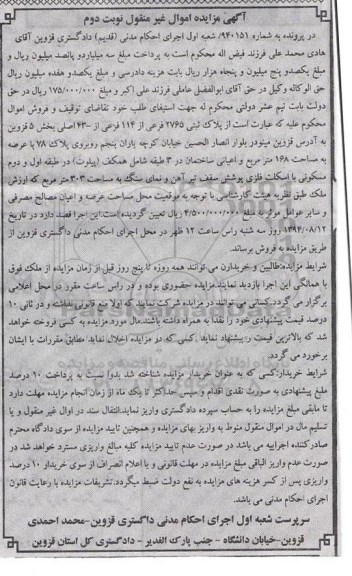 آگهی مزایده اموال غیر منقول نوبت دوم
در پرونده به شماره ۹۴۰۱۵۱/ شعبه اول اجرای احکام مدنی (قدیم) دادگستری قزوین آقای
هادی محمد علی فرزند فیض اله محکوم است به پرداخت مبلغ سه میلیاردو پانصد میلیون ریال و
مبلغ یکصدو پنج میلیون و پنجاه هزار ریال بابت هزینه دادرسی و مبلغ یکصدو هفده میلیون ریال
حق الوکاله وکیل در حق آقای ابوالفضل عاملی فرزند علی اکبر و مبلغ ۱۷۵/۰۰۰/۰۰۰ ریال در حق
دولت بابت نیم عشر دولتی محکوم له جهت استیفای طلب خود تقاضای توقیف و فروش اموال
محکوم علیه که عبارت است از پلاک ثبتی ۲۷۶۵ فرعی از ۱۱۴ فرعی از ۴۳- اصلی بخش ۵ قزوین
به آدرس قزوین مینودر بلوار انصار الحسین خیابان کوچه یاران پنجم روبروی پلاک ۷۸ با عرصه
به مساحت ۱۶۸ متر مربع و اعیانی ساختمان در ۳ طبقه شامل همکف (پیلوت) در طبقه اول و دوم
مسکونی با اسکلت فلزی پوشش سقف تیر آهن و نمای سنگ به مساحت ۳۰۳ متر مربع که ارزش
ملک طبق نظریه هیئت کارشناسی با توجه به موقعیت محل مساحت عرصه و اعیان مصالح مصرفی
و سایر عوامل موثر به مبلغ ۴/۵۰۰/۰۰۰/۰۰۰ ریال تعیین گردیده است.این اجرا قصد دارد در تاریخ
۱۳۹۴/۰۸/۱۲ روز سه شنبه راس ساعت ۱۲ ظهر در محل اجرای احکام مدنی دادگستری قزوین از
طریق مزایده به فروش برساند.
شرایط مزایده:طالبین و خریداران می توانند همه روزه تا پنج روز قبل از زمان مزایده از ملک فوق
با همانگی این اجرا بازدید نمایند.مزایده حضوری بوده و در راس ساعت مقرر در محل اعلامی
برگزار می گردد.کسانی می توانند در مزایده شرکت نمایند که اولا منع قانونی نداشته و در ثانی ۱۰
درصد قیمت پیشنهادی خود را نقدا به همراه داشته باشند.مال مورد مزایده به کسی فروخته خواهد
شد که بالاترین قیمت را پیشنهاد نماید .کسی که در مزایده اخلال نماید مطابق مقررات با ایشان
برخورد می گردد.
شرایط خریدار:کسی که به عنوان خریدار مزایده شناخته شد بدوا نسبت به پرداخت ۱۰ درصد
مبلغ پیشنهادی به صورت نقدی اقدام و سپس حداکثر تا یک ماه از زمان انجام مزایده مهلت دارد
تا مابقی مبلغ مزایده را به حساب سپرده دادگستری واریز نماید.انتقال سند در اوال غیر منقول و یا
تسلیم مال در اموال منقول منوط به واریز بهای مزایده و همچنین تایید مزایده از سوی دادگاه محترم
صادرکننده اجراییه می باشد در صورت عدم تایید مزایده کلیه مبالغ واریزی مسترد خواهد شد در
صورت عدم واریز الباقی مبلغ مزایده در مهلت قانونی و یا اعلام انصراف از سوی خریدار ۱۰ درصد
واریزی پس از کسر هزینه های مزایده به نفع دولت ضبط میگردد.تشریفات مزایده با رعایت قانون
اجرای احکام مدنی می باشد.
سرپرست شعبه اول اجرای احکام مدنی دادگستری قزوین-محمد احمدی
قزوین-خیابان دانشگاه - جنب پارک الغدیر - دادگستری کل استان قزوین